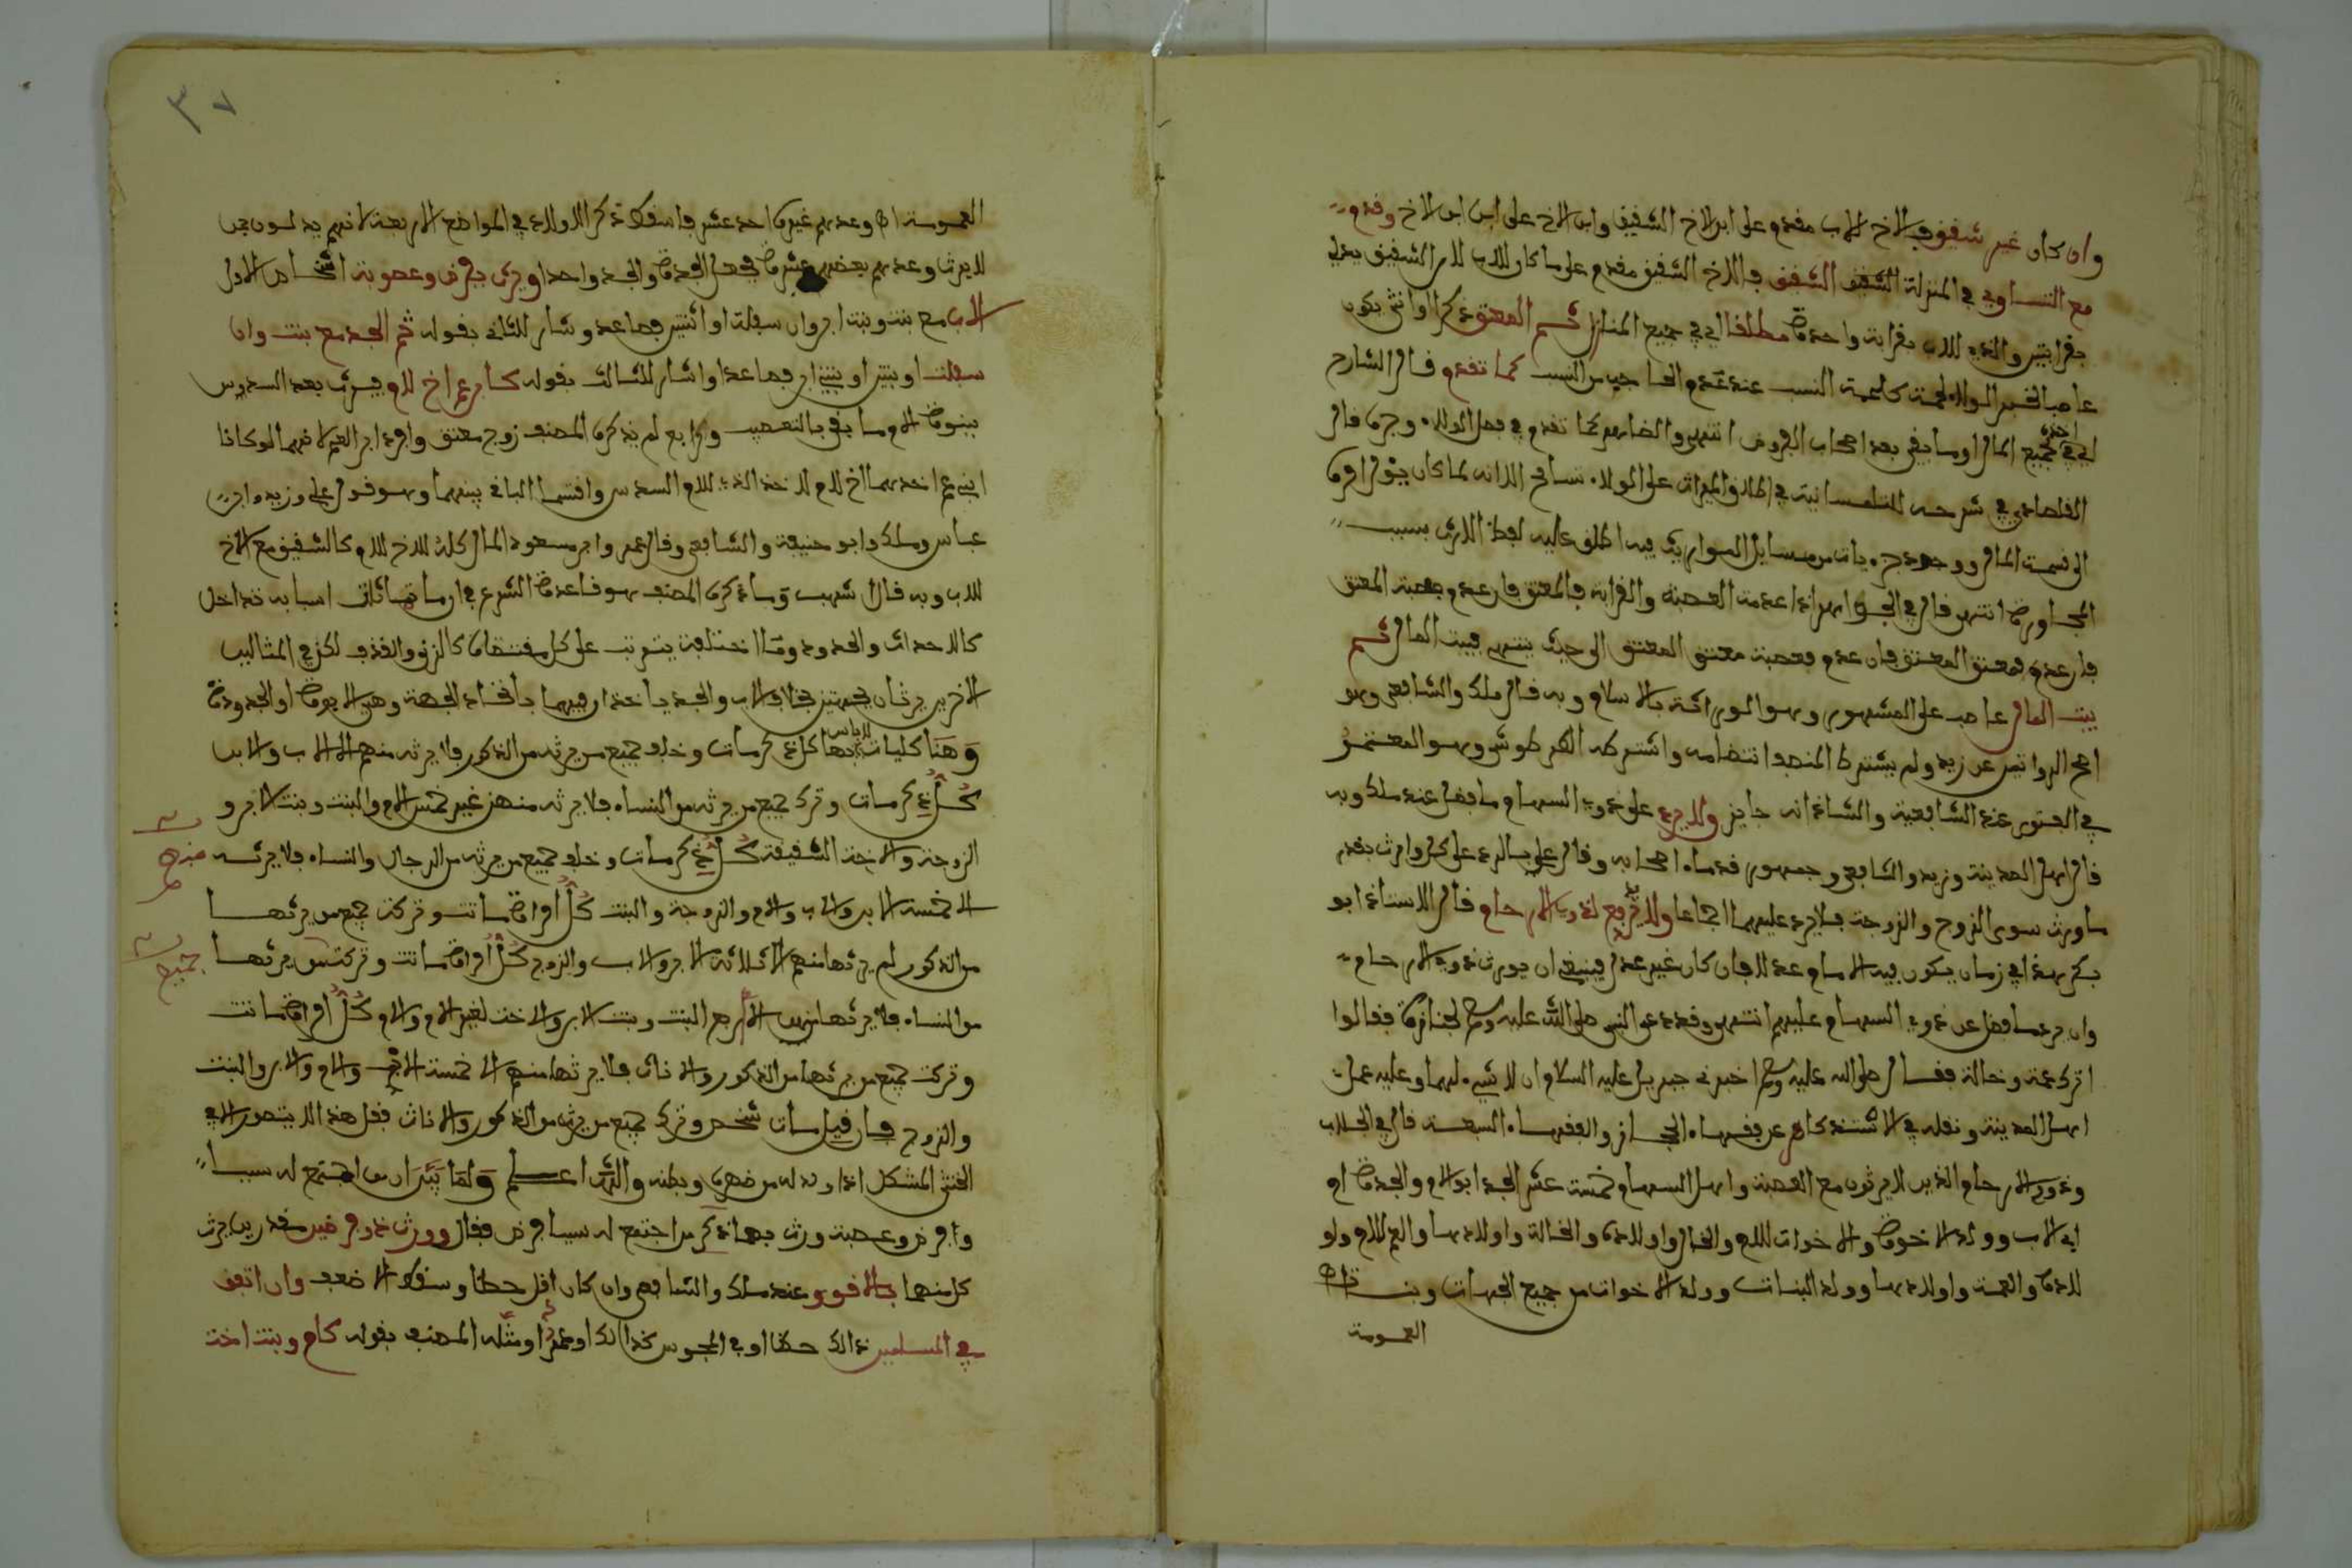 وان كان غير شقيق فالاخ للاب مقدم على ابن الاخ الشقيق وابن الاخ على ابن ابن الاخ وقدم
مع التساوي في المنزلة الشقيق الشقيق فالاخ الشقيق مقدم على ما كان للاب لان الشقيق يدلي
بقرابتين والذي للاب بقرابة واحدة مطلقا اي في جميع المنازل ثم المعتق ذكرا او انثى يكون
عاصبا لخبر الولاء لحمة كلحمة النسب عند عدم الحاجب من النسب كما تقدم قال الشارح
اي في اخذه جميع المال او ما بقي بعد اصحاب الفروض انتهى والضابط كما تقدم في فصل الولاء وجرى قال
القلصادي في شرحه للتلمسانية في اطلاق الميراث على الولاء تسامح الا انه لما كان يئول امره
الى قسمة المال ووجود جزءيات من مسايل المواريث فيه اطلق عليه لفظ الارث بسبب
المجاورة انتهى قال في الجواهر اذا عدمت العصبة والقرابة فالمعتق فان عدم فعصبة المعتق
فان عدم فمعتق المعتق فان عدم فعصبة معتق المعتق الى حيث ينتهي فبيت المال ثم
بيت المال عاصب على المشهور وهو الموراثة بالاسلام وبه قال ملك والشافعي وهو
اصح الروايتين عن زيد ولم يشترط المصنف انتظامه واشترطه الطرطوشي وهو المعتمد
في الفتوى عند الشافعية والشاذ انه حايز ولا يرد على ذوي السهام ما فضل عند ملك وبه
قال اهل المدينة وزيد والشافعي وجمهور قدماء اصحابه وقال علي بالرد على كل وارث بقدر
ما ورث سوى الزوج والزوجة فلا يرد عليهما اجماعا ولا يدفع لذوي الارحام قال الاستاذ ابو
بكر هذا في زمان يكون فيه الامام عدلا فان كان غير عدل فينبغي ان يورث ذوي الارحام
وان يرد ما فضل عن ذوي السهام عليهم انتهى وقد دعي النبي صلى الله عليه وسلم لجنازة فقالوا
ترك عمة وخالة فقال صلى الله عليه وسلم اخبرني جبريل عليه السلام ان لا شيء لهما وعليه عمل
اهل المدينة ونقله في الاستذكار عن فقهاء الحجاز والفقهاء السبعة قال في الجلاب
وذوي الارحام الذين لا يرثون مع العصبة واهل السهام خمسة عشر الجد ابو الام والجدة ام
ابي الاب وولد الاخوة والاخوات للام والخال واولاده والخالة واولادها والعم للام وولو
لاده والعمة واولادها وولد البنات وولد الاخوات من جميع الجهات وبنات
العمومة
٣٧
العمومة اه وعدهم غيره احد عشر فاسقط ذكر الاولاد في المواضع الاربعة لانهم يدلون بمن
لا يرث وعدهم بعضهم عشرة فجعل الجدة والجد واحدا ويرث بفرض وعصوبة اشخاص الاول
الاب مع بنت وبنت ابن وان سفلت او اثنتين فصاعدا واشار للثاني بقوله ثم الجد مع بنت وان
سفلت او بنتين او بنتي ابن فصاعدا واشار للثالث بقوله كابن عم اخ لام فيرث بعد السدس
ببنوة الام وما بقي بالتعصيب ورابع لم يذكره المصنف زوج معتق وافرد ابن العم لانهما لو كانا
ابني عم احدهما اخ لام لاخذ الذي للام السدس واقتسما الباقي بينهما وهو قول علي وزيد وابن
عباس وملك وابو حنيفة والشافعي وقال عمر وابن مسعود المال كله للاخ للام كالشقيق مع الاخ
للاب وبه قال اشهب وما ذكره المصنف هو قاعدة الشرع في ان ما تماثلت اسبابه تداخل
كالاحداث والحدود وما اختلفت يترتب على كل مقتضاه كالزنى والقذف لكن في المثالين
الاخرين يرثان بجهتين بخلاف الاب والجد ياخذان فيهما باتحاد الجهة وهي الابوة او الجدودة
وهنا كليات لا باس بها كل ذكر مات وخلف جميع من يرثه من الذكور فلا يرثه منهم الا الاب والابن
كل ذكر مات وترك جميع من يرثه من النساء فلا يرثه منهن غير خمس الام والبنت وبنت الابن و
الزوجة والاخت الشقيقة كل ذكر مات وخلف جميع من يرثه من الرجال والنساء فلا يرثه منهم
الا خمسة الابن والاب والام والزوجة والبنت كل امراة ماتت وتركت جميع من يرثها
من الذكور لم يرثها منهم الا ثلاثة الابن والاب والزوج كل امراة ماتت وتركت جميع من يرثها
من النساء فلا يرثها منهن الا اربع البنت وبنت الابن والاخت لغير الام والام كل امراة ماتت
وتركت جميع من يرثها من الذكور والاناث فلا يرثها منهم الا خمسة الاب والام والابن والبنت
والزوج فان قيل مات شخص وترك جميع من يرث من الذكور والاناث فقل هذا لا يتصور الا في
الخنثى المشكل اذا ولد له من ظهره وبطنه والله اعلم ولما بين ان من اجتمع له سببا
وافرض وعصبة ورث بهما ذكر من اجتمع له سببا فرض فقال وورث ذو فرضين مقدرين يرث
كل منهما بالاقوى وعند ملك والشافعي وان كان اقل حظا وسقط الاضعف وان اتفق
في المسلمين ذالك خطا او في المجوس كذالك او عمدا ومثله المصنف بقوله كام وبنت اخت